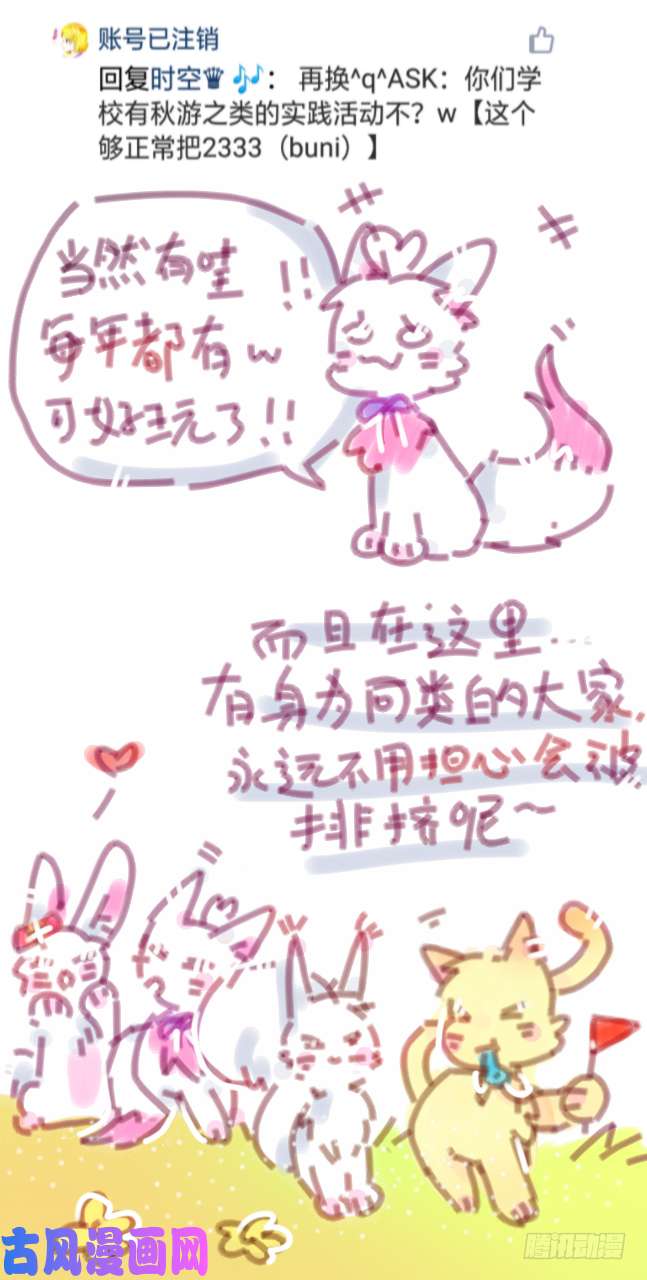 账号已注销
回复时空♛🎶： 再换^q^ASK：你们学
校有秋游之类的实践活动不？w【这个
够正常把2333（buni）】
当然有哇!!
每年都有w
可好玩了!!
而且在这里...
有身为同类的大家,
永远不用担心会被
排挤呢～
古风漫画网
腾讯动漫